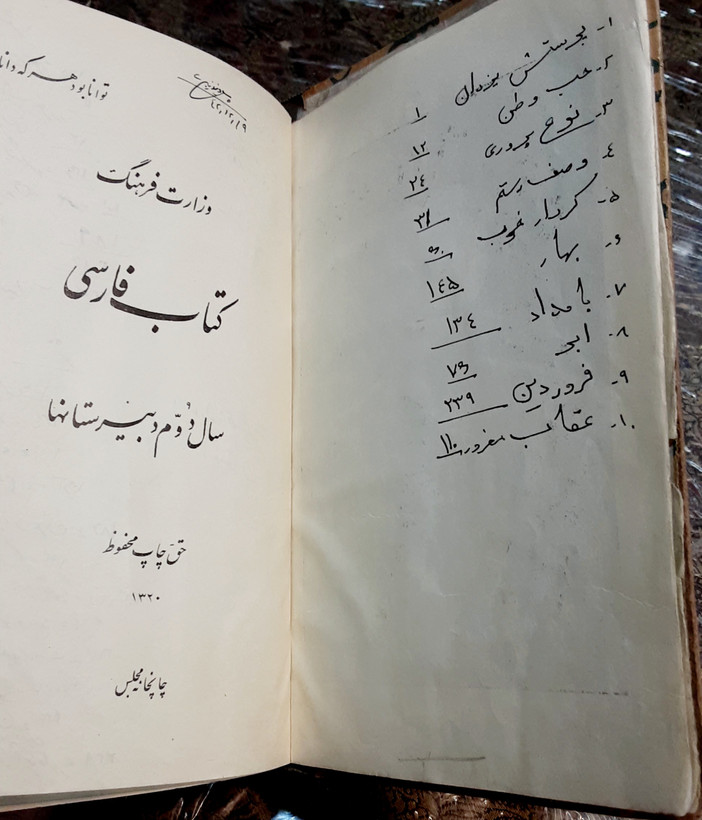 ۱- پرستش یزدان ۱
۲- حب وطن ۱۲
۳- نوع پروری ۲۴
۴- وصف رستم ۳۸
۵- کردار خوب
۶- بهار ۱۴۵
۷- بامداد ۱۳۴
۸- ابر ۷۶
۹- فروردین ۲۳۹
۱۰- عقاب مغرور ۱۱۰
توانا بود هر که دانا
۴۲,۱۲,۱۹
وزارت فرهنگ
کتاب فارسی
سال دوّم دبیرستانها
حق چاپ محفوظ
۱۳۲۰
چاپخانه مجلس